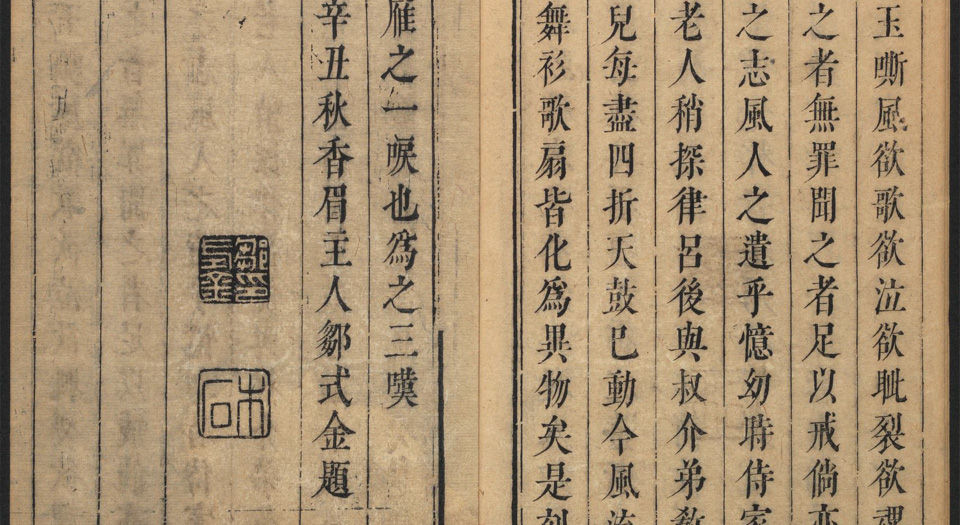 玉嘶風欲歌欲泣欲眦裂欲
之者無罪聞之者足以戒倘亦
之志風人之遺乎憶幼時侍家
老人稍探律呂後與叔介弟教
兒每盡四折天鼓已動今風流
舞衫歌扇皆化為異物矣是刻
雁之一唳也為之三嘆
辛丑秋香眉主人鄒式金題